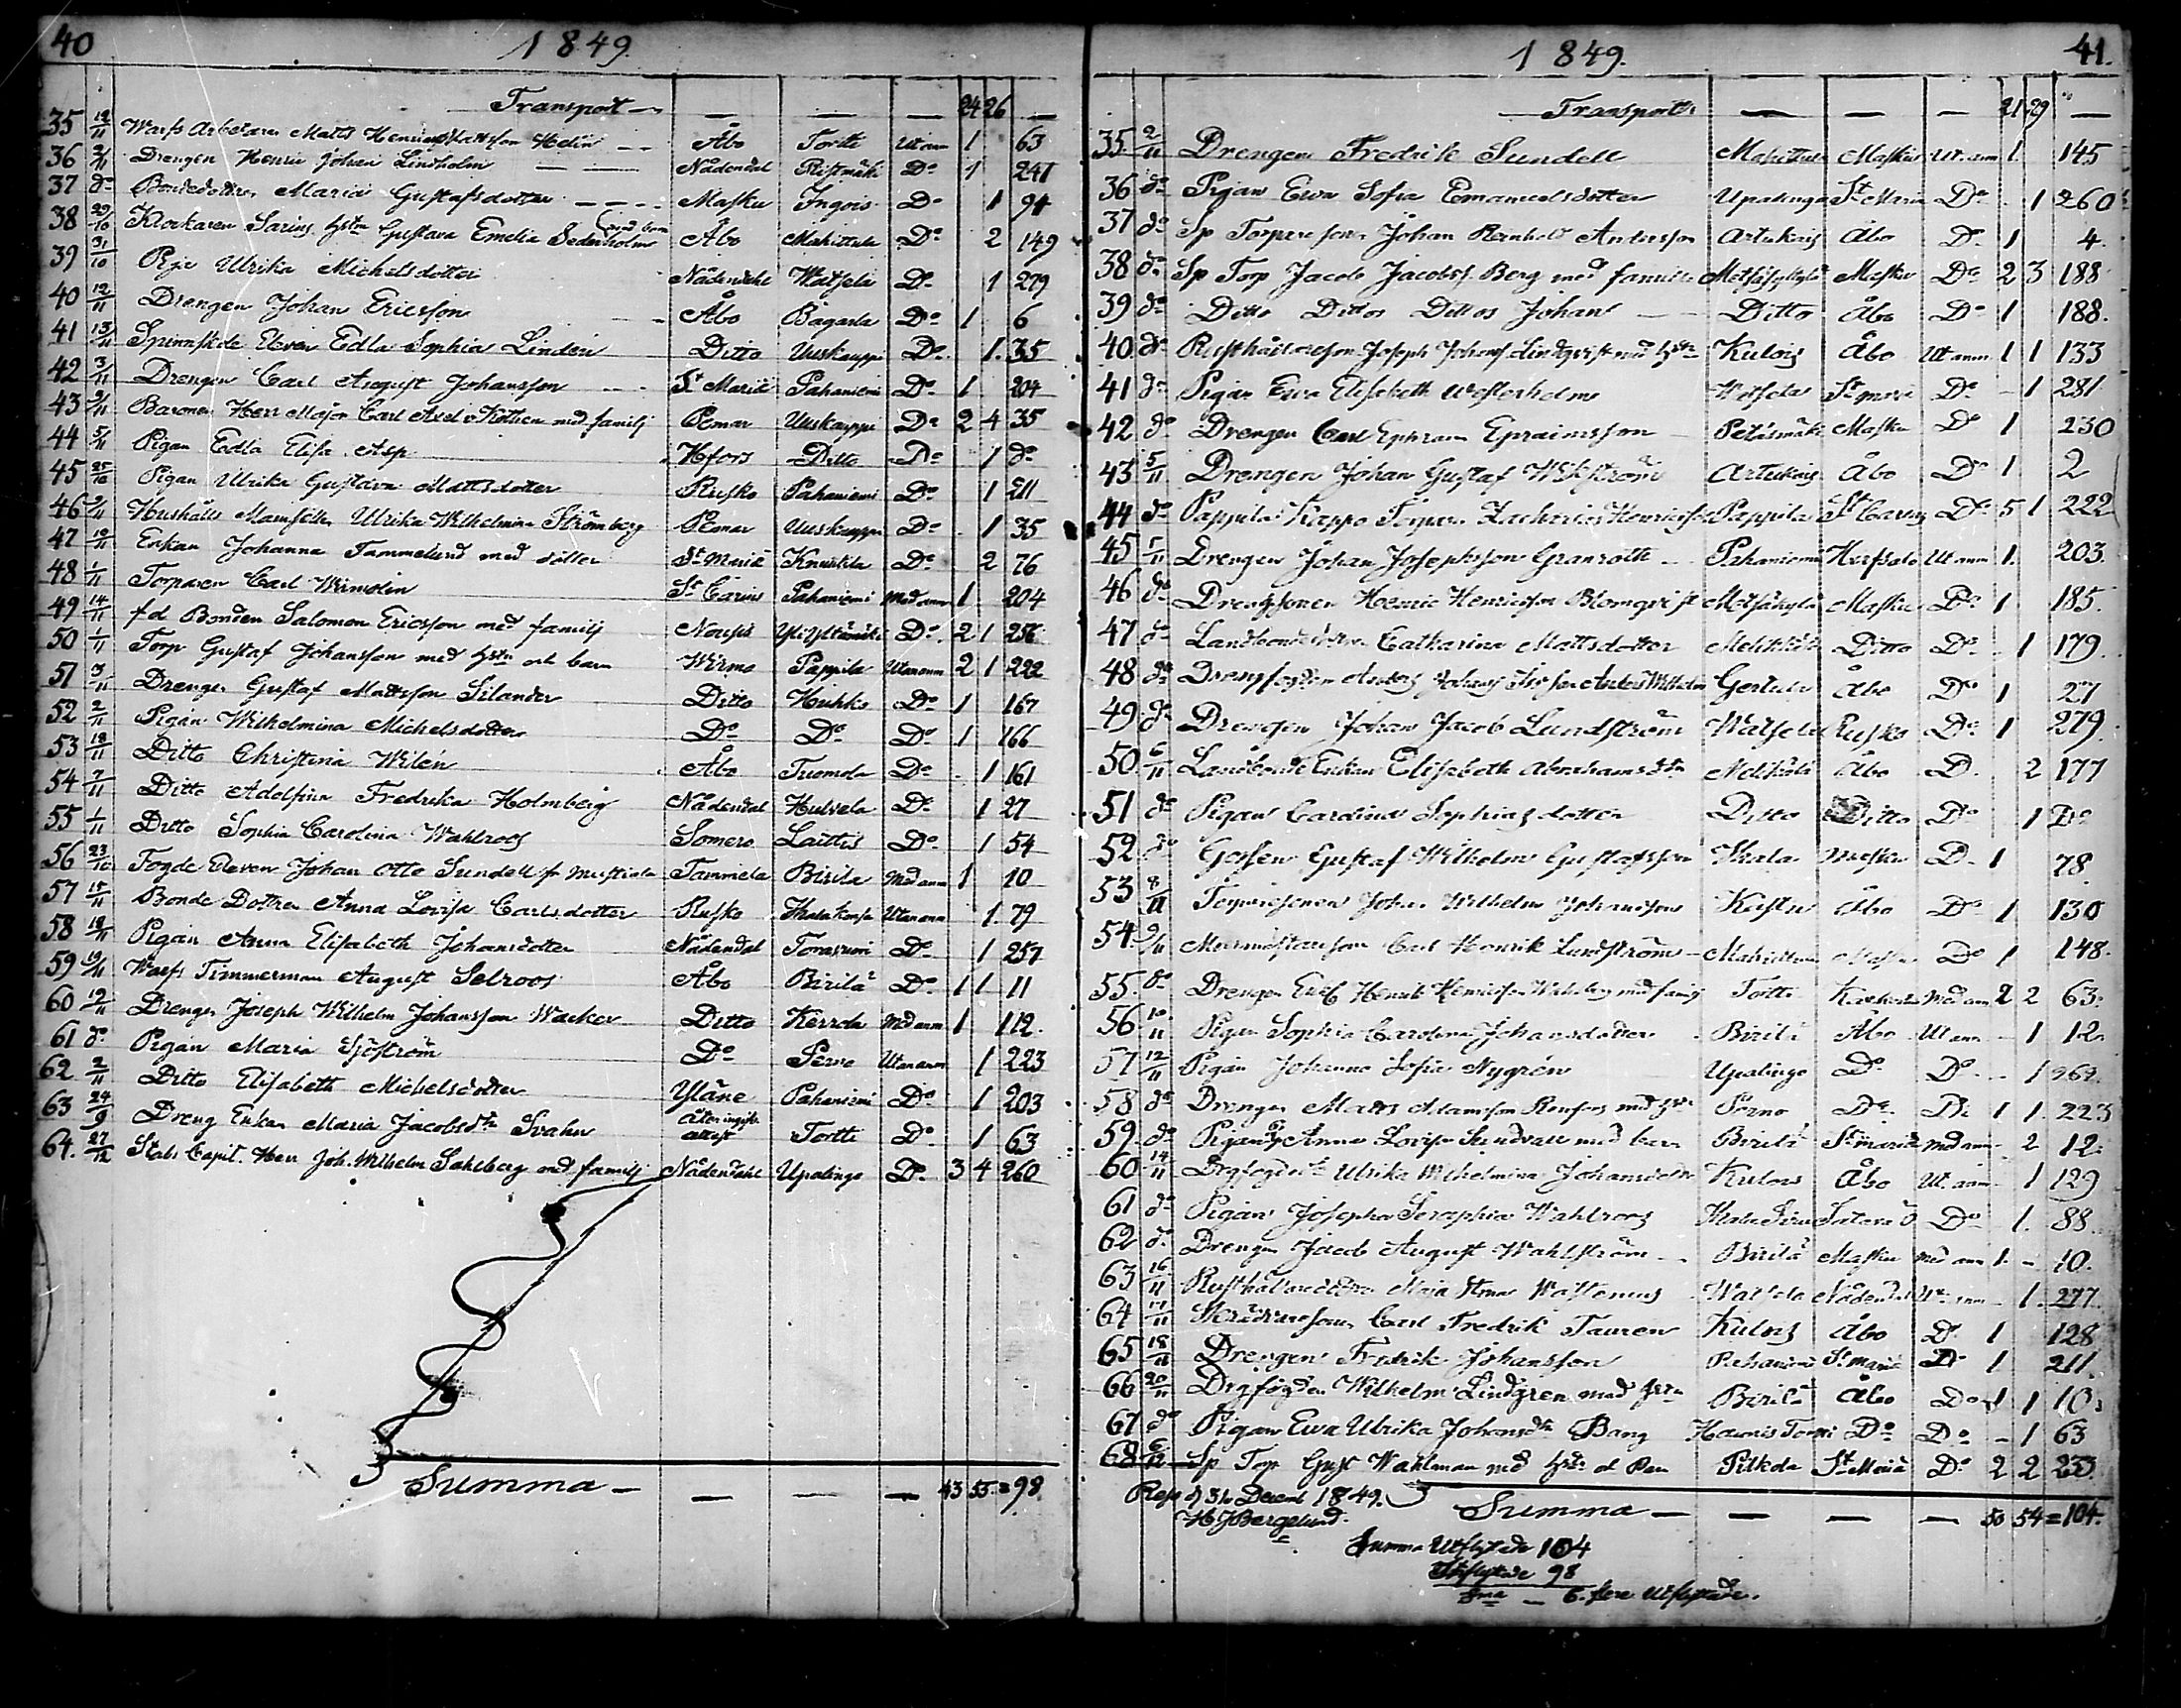 40 1849.
Transport — — — — 24 26 —
35 12/11 Warfs Arbetaren Matts Henric Mattsson Hedén — Åbo Tortti Ut ann 1 63
36 2/11 Drengen Henric Johan Lindholm — — Nådendal Ristimäki Do 1 241
37 do Bondedottren Maria Gustafsdotter — — Masku Ingois Do 1 94
38 29/10 Klockaren Sarins Hstru Gustava Emelia Sederholm med barn Åbo Mahittula Do 2 149
39 31/10 Piga Ulrika Michelsdotter Nådendahl Watsela Do 1 279
40 12/11 Drengen Johan Ericsson — Åbo Bagarla Do 1 6
41 13/11 Spinnskole Eleven Edla Sophia Lindén Ditto Uuskauppi Do 1. 35
42 3/11 Drengen Carl August Johansson — St Mariæ Pahaniemi Do 1 204
43 9/11 Baronen Herr Major Carl Axel v Köthen med familj Pemar Uuskauppi Do 2 4 35
44 5/11 Pigan Edla Elisa Asp Hfors Ditto Do 1 do
45 25/10 Pigan Ulrika Gustava Mattsdotter Rusko Pahaniemi Do 1 211
46 9/11 Hushålls Mamsellen Ulrika Wilhelmina Strömberg Pemar Uuskauppi Do 1 35
47 10/11 Enkan Johanna Tammelund med dotter St Mariæ Knuutila Do 2 76
48 1/11 Torparen Carl St Carins Pahaniemi Med ann 1 204
49 14/11 fd Bonden Salomon Ericsson med familj Nousis Do 2 1 256
50 1/11 Torp Gustaf Johansson med hstru och barn Wirmo Pappila Utan ann 2 1 222
51 3/11 Drengen Gustaf Mattsson Silander Ditto Huhko Do 1 167
52 2/11 Pigan Wilhelmina Michelsdotter Do Do Do 1 166
53 18/11 Ditto Christina Wilén Åbo Tuomola Do 1 161
54 7/11 Ditto Adolfina Fredrika Holmberg Nådendal Huhvela Do 1 27
55 1/11 Ditto Sophia Carolina Wahlroos Somero Lauttis Do 1 54
56 23/10 Fogde Eleven Johan Otto Sundell fr Mustiala Tammela Birila Med ann 1 10
57 15/11 Bonde Dottren Anna Lovisa Carlsdotter Rusko Utan ann 1. 79
58 18/11 Pigan Anna Elisabeth Johansdotter Nådendal Do 1 257
59 19/11 Warfs Timmerman August Selroos Åbo Birilä Do 1 1 11
60 19/11 Drengen Joseph Wilhelm Johansson Wacker Ditto Kerrola Med ann 1 112.
61 do Pigan Maria Sjöström Do Perno Utan ann 1 223
62 2/11 Ditto Elisabeth Michelsdotter Yläne Pahaniemi Do 1 203
63 24/9 Dreng Enkan Maria Jacobsdtr Svahn attest Tortti Do 1 63
64. 27/12 Stabs Capit. Herr Joh. Wilhelm Sahlberg med familj Nådendahl Upalingo Do 3 4 260
Summa — — — — 43 55 = 98
1849. 41.
Transport — — — 21 29 —
35 2/11 Drengen Fredrik Sundell Mahittula Masku Ut ann 1. 145
36 do Pigan Ewa Sofia Emanuelsdotter Upalingo St Mariæ Do 1 260
37 do Sp Torparesonen Johan Reinhold Andersson Artukais Åbo Do 1 4.
38 do Sp Torp Jacob Jacobss. Berg med famille Masku Do 2 3 188
39 do Ditto Dittos Dittos Johan — Ditto Åbo Do 1 188.
40 do Rusthållareson Joseph Johanss Lindqvist med hstru Kulois Åbo Ut ann 1 1 133
41 do Pigan Ewa Elisabeth Westerholm Watsela St Mariæ Do 1 281
42 do Drengen Carl Ephraim Epraimsson Masku Do 1 230
43 5/11 Drengen Johan Gustaf Wikström Artukais Åbo Do 1 2
44 do Pappila Kappo Torpare Zacharias Henricsson Pappila St Carins Do 5 1 222
45 5/11 Drengen Johan Josephsson Granroth — Pahaniemi Ut ann 1. 203.
46 do Drengssonen Henric Henricsson Blomqvist Masku Do 1 185.
47 do Landbondedottren Catharina Mattsdotter Ditto Do 1 179.
48 do Åbo Do 1 27
49 do Drengen Johan Jacob Lundström Watsela Rusko Do 1 279.
50 6/11 Landbonde Enkan Elisabeth Abrahamsdtr Åbo D. 2 177
51 do Pigan Carolina Sophia dotter Ditto Ditto Do 1 Do
52 do Gossen Gustaf Wilhelm Gustafsson Masku D. 1 78
53 8/11 Torparesonen Johan Wilhelm Johansson Åbo Do 1 130
54. 9/11 Murmästaresonen Carl Henrik Lundström — Mahittula Masku Do 1 148.
55. do Drengen Henrik Henricsson med familj Tortti Med ann 2 2 63.
56. 10/11 Pigan Sophia Carolina Johansdotter Birilä Åbo Ut ann 1 12.
57 12/11 Pigan Johanna Sofia Nygrén Upalingo Do Do 1 262.
58 do Drengen Matts Adamsson med hstru Perno Do Do 1 1. 223
59. do Pigan Anna Lovisa Sundvall med barn Birilä St Mariæ Med ann 2 12.
60 14/11 Ulrika Wilhelmina Johansdotter Kulois Åbo Ut. ann 1 129
61 do Pigan Josepha Seraphia Wahlroos Do 1. 88.
62 do Drengen Jacob August Wahlström — Birilä Masku Med ann 1. — 10.
63 16/11 Rusthållaredottren Maja Stina Wastenius Watsela Nådendal Ut ann 1. 277.
64 17/11 Skräddaresonen Carl Fredrik Tauren Kulois Åbo D. 1 128
65 18/11 Drengen Fredrik Johansson Pahaniemi St Mariæ D 1 211.
66 20/11 Drgfogden Wilhelm Lindgren med hstru Birilä Åbo Do 1 1 10.
67 do Pigan Ewa Ulrika Johansdtr Bang Do Do — 1 63
68 6/12 Sp Torp Gust Wahlman med hstru o barn Pitkola St Mariæ Do 2 2 233
d 31 Decemb 1849.
H J Bergelund.
Summa — — — — 50 54 = 104.
Summa Utflyttade 104
Inflyttade 98
Sma — 6. flere Utflyttade.